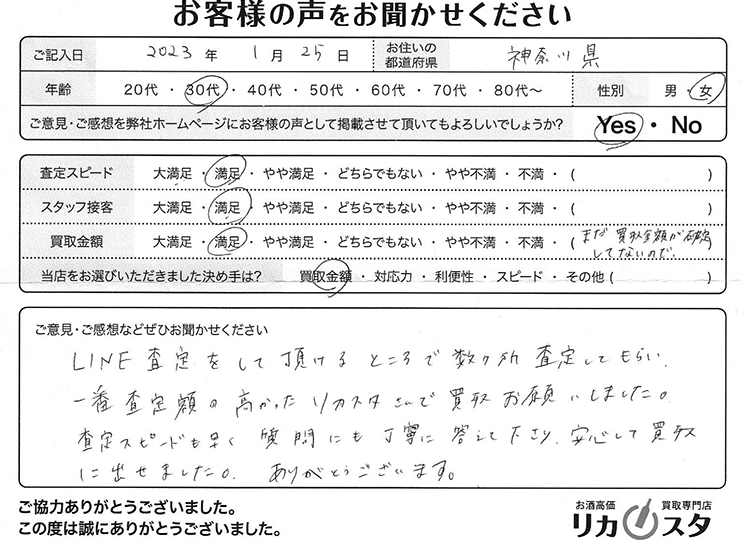 お客様の声をお聞かせください
ご記入日 2023 年 1 月 25 日 お住いの都道府県 神奈川県
年齢 20代・30代・40代・50代・60代・70代・80代〜 性別 男・女
ご意見・ご感想を弊社ホームページにお客様の声として掲載させて頂いてもよろしいでしょうか? Yes・No
査定スピード 大満足・満足・やや満足・どちらでもない・やや不満・不満・( )
スタッフ接客 大満足・満足・やや満足・どちらでもない・やや不満・不満・( )
買取金額 大満足・満足・やや満足・どちらでもない・やや不満・不満・(まだ買取金額が確定してないので。)
当店をお選びいただきました決め手は? 買取金額・対応力・利便性・スピード・その他( )
ご意見・ご感想などぜひお聞かせください
LINE査定をして頂けるところで数ヶ所査定してもらい、
一番査定額の高かったリカスタさんで買取お願いしました。
査定スピードも早く質問にも丁寧に答えて下さり、安心して買取
に出せました。ありがとうございます。
ご協力ありがとうございました。
この度は誠にありがとうございました。
お酒高価 買取専門店
リカスタ